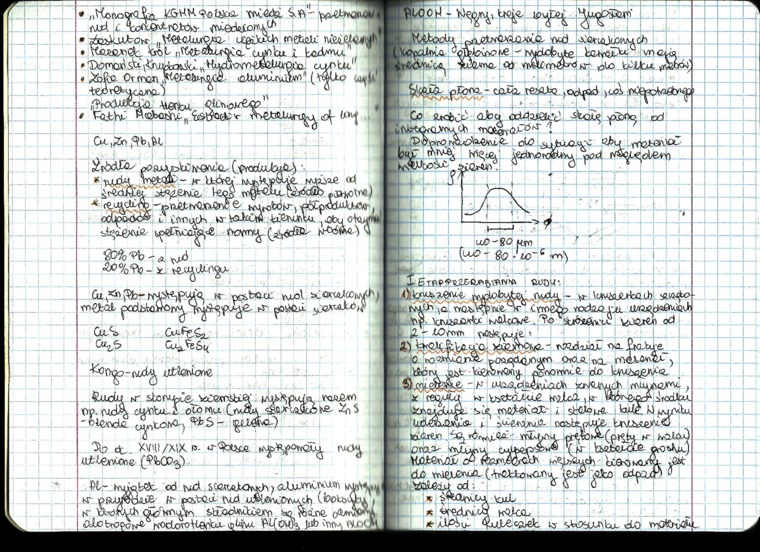 • „Monografia KGHM Polska miedź S.A" przetwarzanie
rud i koncentratów miedziowych
metali nieżelaznych"
• Metalurgia cynku i kadmu"
• „Hydrometalurgia cynku"
• Zofia Orman, „Metalurgia aluminium" (tylko część
teoretyczna)
„Produkcja tlenku glinowego"
• Fathi Habashi, metalurgy of
Cu, Zn, Pb, Al
Źródła pozyskiwania (produkcja):
* rudy metali – w której występuje wyższe od
średniej stężenie tego metalu (źródło pierwotne)
* recykling – przetwarzanie wyrobów, półproduktów,
odpadów i innych w takim kierunku, aby otrzymać
stężenie spełniające normy (źródło wtórne)
80% Pb – z rud
20% Pb – z recyclingu
Cu, Zn, Pb – występują w postaci rud siarczkowych,
metal podstawowy występuje w postaci siarczków
CuS CuFeS2
Cu2S
Kongo – rudy utlenione
Rudy w skorupie ziemskiej występują razem
np. rudy cynku i ołowiu (rudy siarczkowe ZnS
– blenda cynkowa, PbS – galena)
Do XVIII/XIX w. w Polsce występowały rudy
utlenione (PbCO3)
Al – wyjątek od rud siarczkowych, aluminium występuje
w przyrodzie w postaci rud utlenionych (boksyty)
w których głównym składnikiem są różne odmiany
alotropowe wodorotlenku glinu Al(OH)3 lub inny AlOOH
AlOOH – Węgry, kraje byłej Jugosławii
Metody przetwarzania rud siarczkowych
(kopalnie głębinowe – wydobyte kawałki mają
średnicę, ziarna od milimetrów do kilku metrów)
Skała płona – cała reszta, odpad, coś niepotrzebnego
Co zrobić aby oddzielić skałę płoną od
materiałów?
Doprowadzenie do sytuacji aby materiał
był mniej więcej jednorodny pod względem
wielkości ziaren.
40-80 μm
(40-80 · 10⁻⁶ m)
I ETAP PRZERABIANIA RUDY:
1) kruszenie wydobytej rudy – w kruszarkach
a następnie w innego rodzaju urządzeniach
np. kruszarki walcowe. Po kruszeniu ziaren od
2-10mm następuje:
2) klasyfikacja ziarnowa – rozdział na frakcje
o rozmiarze pożądanym oraz na materiał,
który jest kierowany ponownie do kruszenia
3) mielenie – w urządzeniach zwanych młynami,
z reguły w kształcie walca, w którego środku
znajduje się materiał i stalowe kule. W wyniku
uderzania i ścierania następuje kruszenie
ziaren. Są również młyny prętowe (pręty w walcu)
oraz młyny cylpepsowe
Materiał o rozmiarach większych kierowany jest
do mielenia (traktowany jest jako odpad)
zależy od:
* średnicy kul
* średnicy walca
* ilości kuleczek w stosunku do materiału